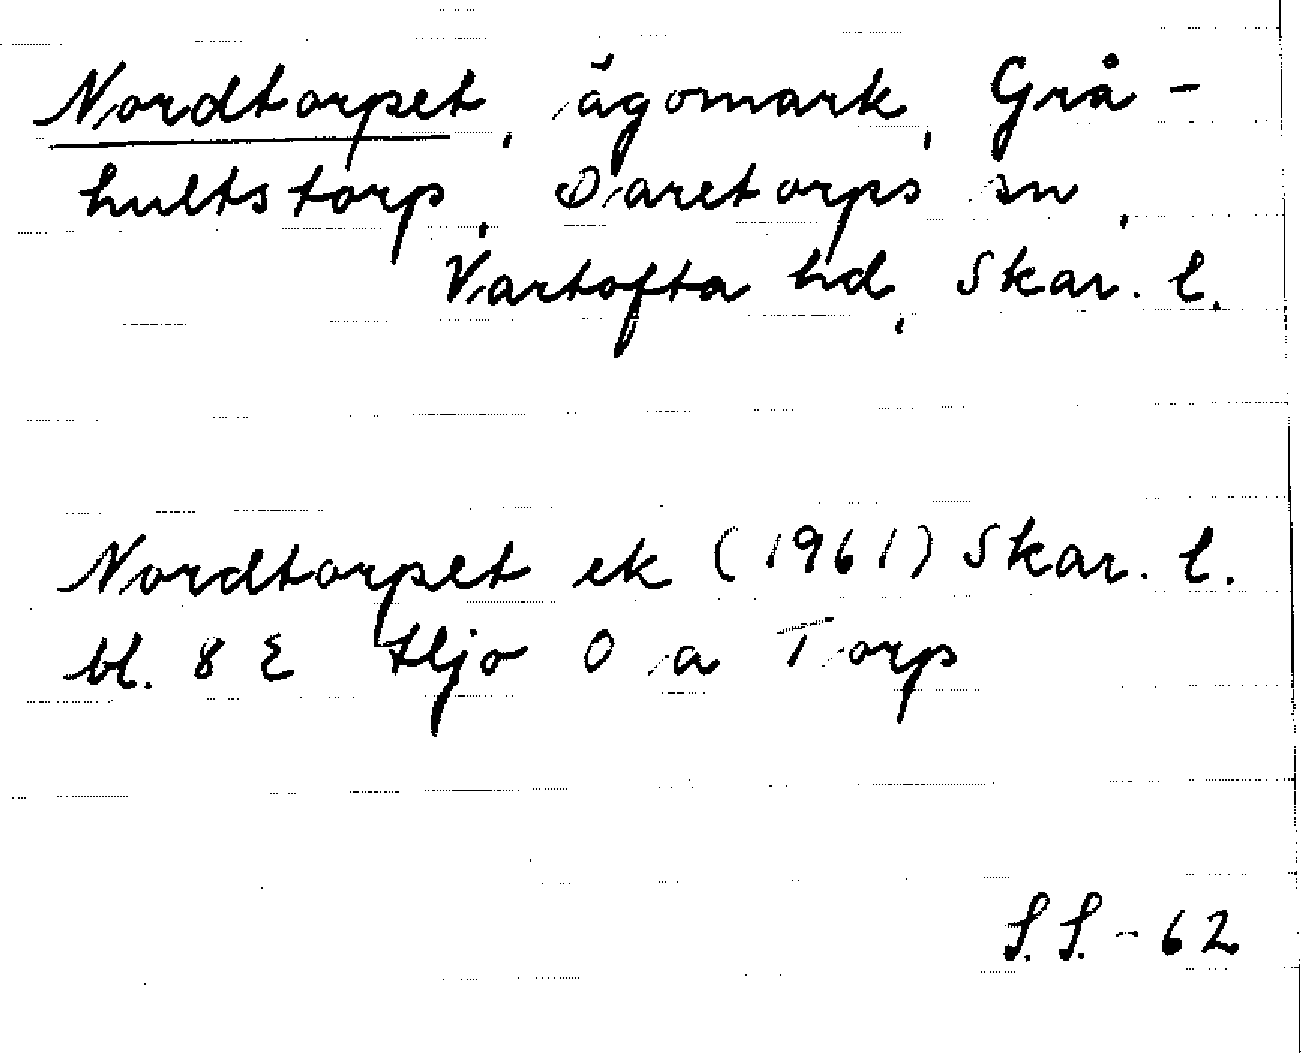 Nordtorpet, ägomark, Grå-
hultstorp, Daretorps sn,
Vartofta hd, Skar. l.
Nordtorpet ek (1961) Skar. l.
bl. 8 E Hjo 0 a Torp
S.S.-62